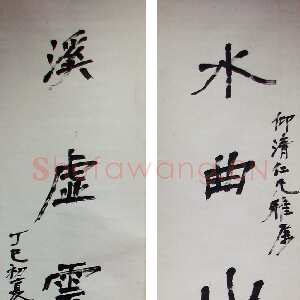 仰清仁兄雅屬
水曲山
溪虛雲
丁巳初夏
Shufawang.CN